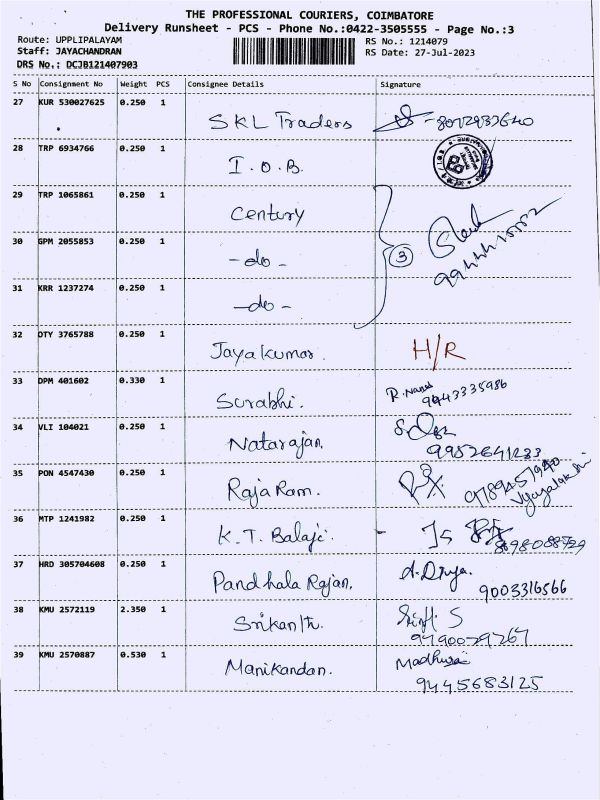 THE PROFESSIONAL COURIERS, COIMBATORE
Delivery Runsheet - PCS - Phone No.:0422-3505555 - Page No.:3
Route: UPPLIPALAYAM RS No.: 1214079
Staff: JAYACHANDRAN RS Date: 27-Jul-2023
DRS No.: DCJB121407903
S No Consignment No Weight PCS Consignee Details Signature
27 KUR 530027625 0.250 1 SKL Traders
28 TRP 6934766 0.250 1 I.O.B.
29 TRP 1065861 0.250 1 Century
30 GPM 2055853 0.250 1 -do-
3
31 KRR 1237274 0.250 1 -do-
32 DTY 3765788 0.250 1 Jayakumar. H/R
33 DPM 401602 0.330 1 Surabhi. 9443335986
34 VLI 104021 0.250 1 Natarajan. 9952641233
35 PON 4547430 0.250 1 RajaRam. Vijayalakshmi
36 MTP 1241982 0.250 1 K.T. Balaji.
37 HRD 305704608 0.250 1 Pandhala Rajan. 9003316566
38 KMU 2572119 2.350 1 Srikanth. 9790029267
39 KMU 2570887 0.530 1 Manikandan. Madhurai
9445683125